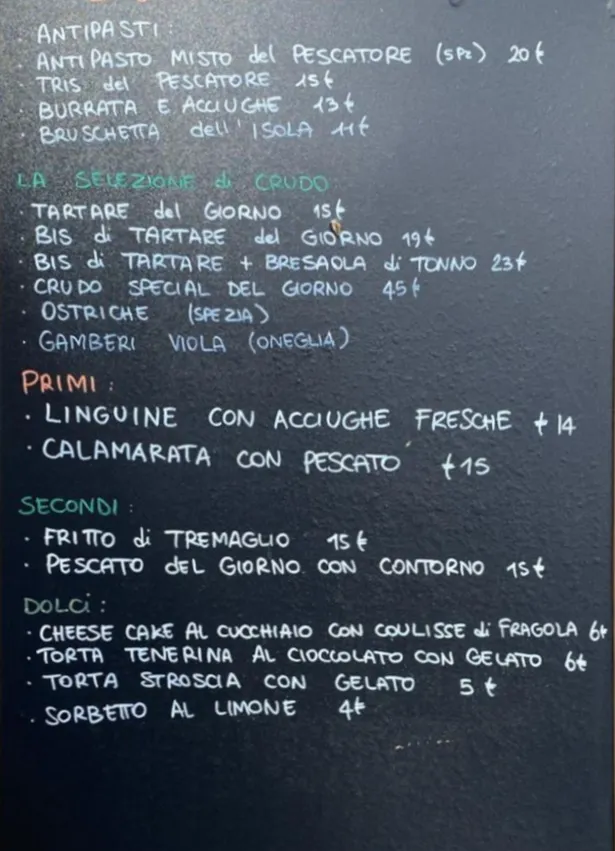 ANTIPASTI:
· ANTIPASTO MISTO del PESCATORE (5Pz) 20€
· TRIS del PESCATORE 15€
· BURRATA E ACCIUGHE 13€
· BRUSCHETTA dell'ISOLA 11€
LA SELEZIONE di CRUDO
· TARTARE del GIORNO 15€
· BIS di TARTARE del GIORNO 19€
· BIS di TARTARE + BRESAOLA di TONNO 23€
· CRUDO SPECIAL DEL GIORNO 45€
· OSTRICHE (SPEZIA)
· GAMBERI VIOLA (ONEGLIA)
PRIMI:
· LINGUINE CON ACCIUGHE FRESCHE €14
· CALAMARATA CON PESCATO €15
SECONDI:
· FRITTO di TREMAGLIO 15€
· PESCATO dEL GIORNO CON CONTORNO 15€
DOLCi:
· CHEESE CAKE AL CUCCHIAIO CON COULISSE di FRAGOLA 6€
· TORTA TENERINA AL CIOCCOLATO CON GELATO 6€
· TORTA STROSCIA CON GELATO 5€
· SORBETTO AL LIMONE 4€